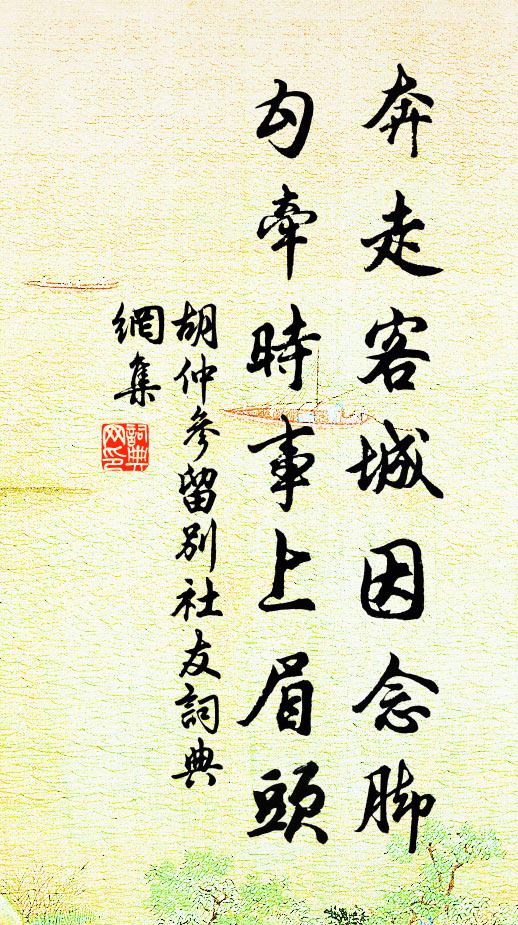 奔走客城因念脚
勾牽時事上眉頭
胡仲參留別社友詞典
網集
詞典網印